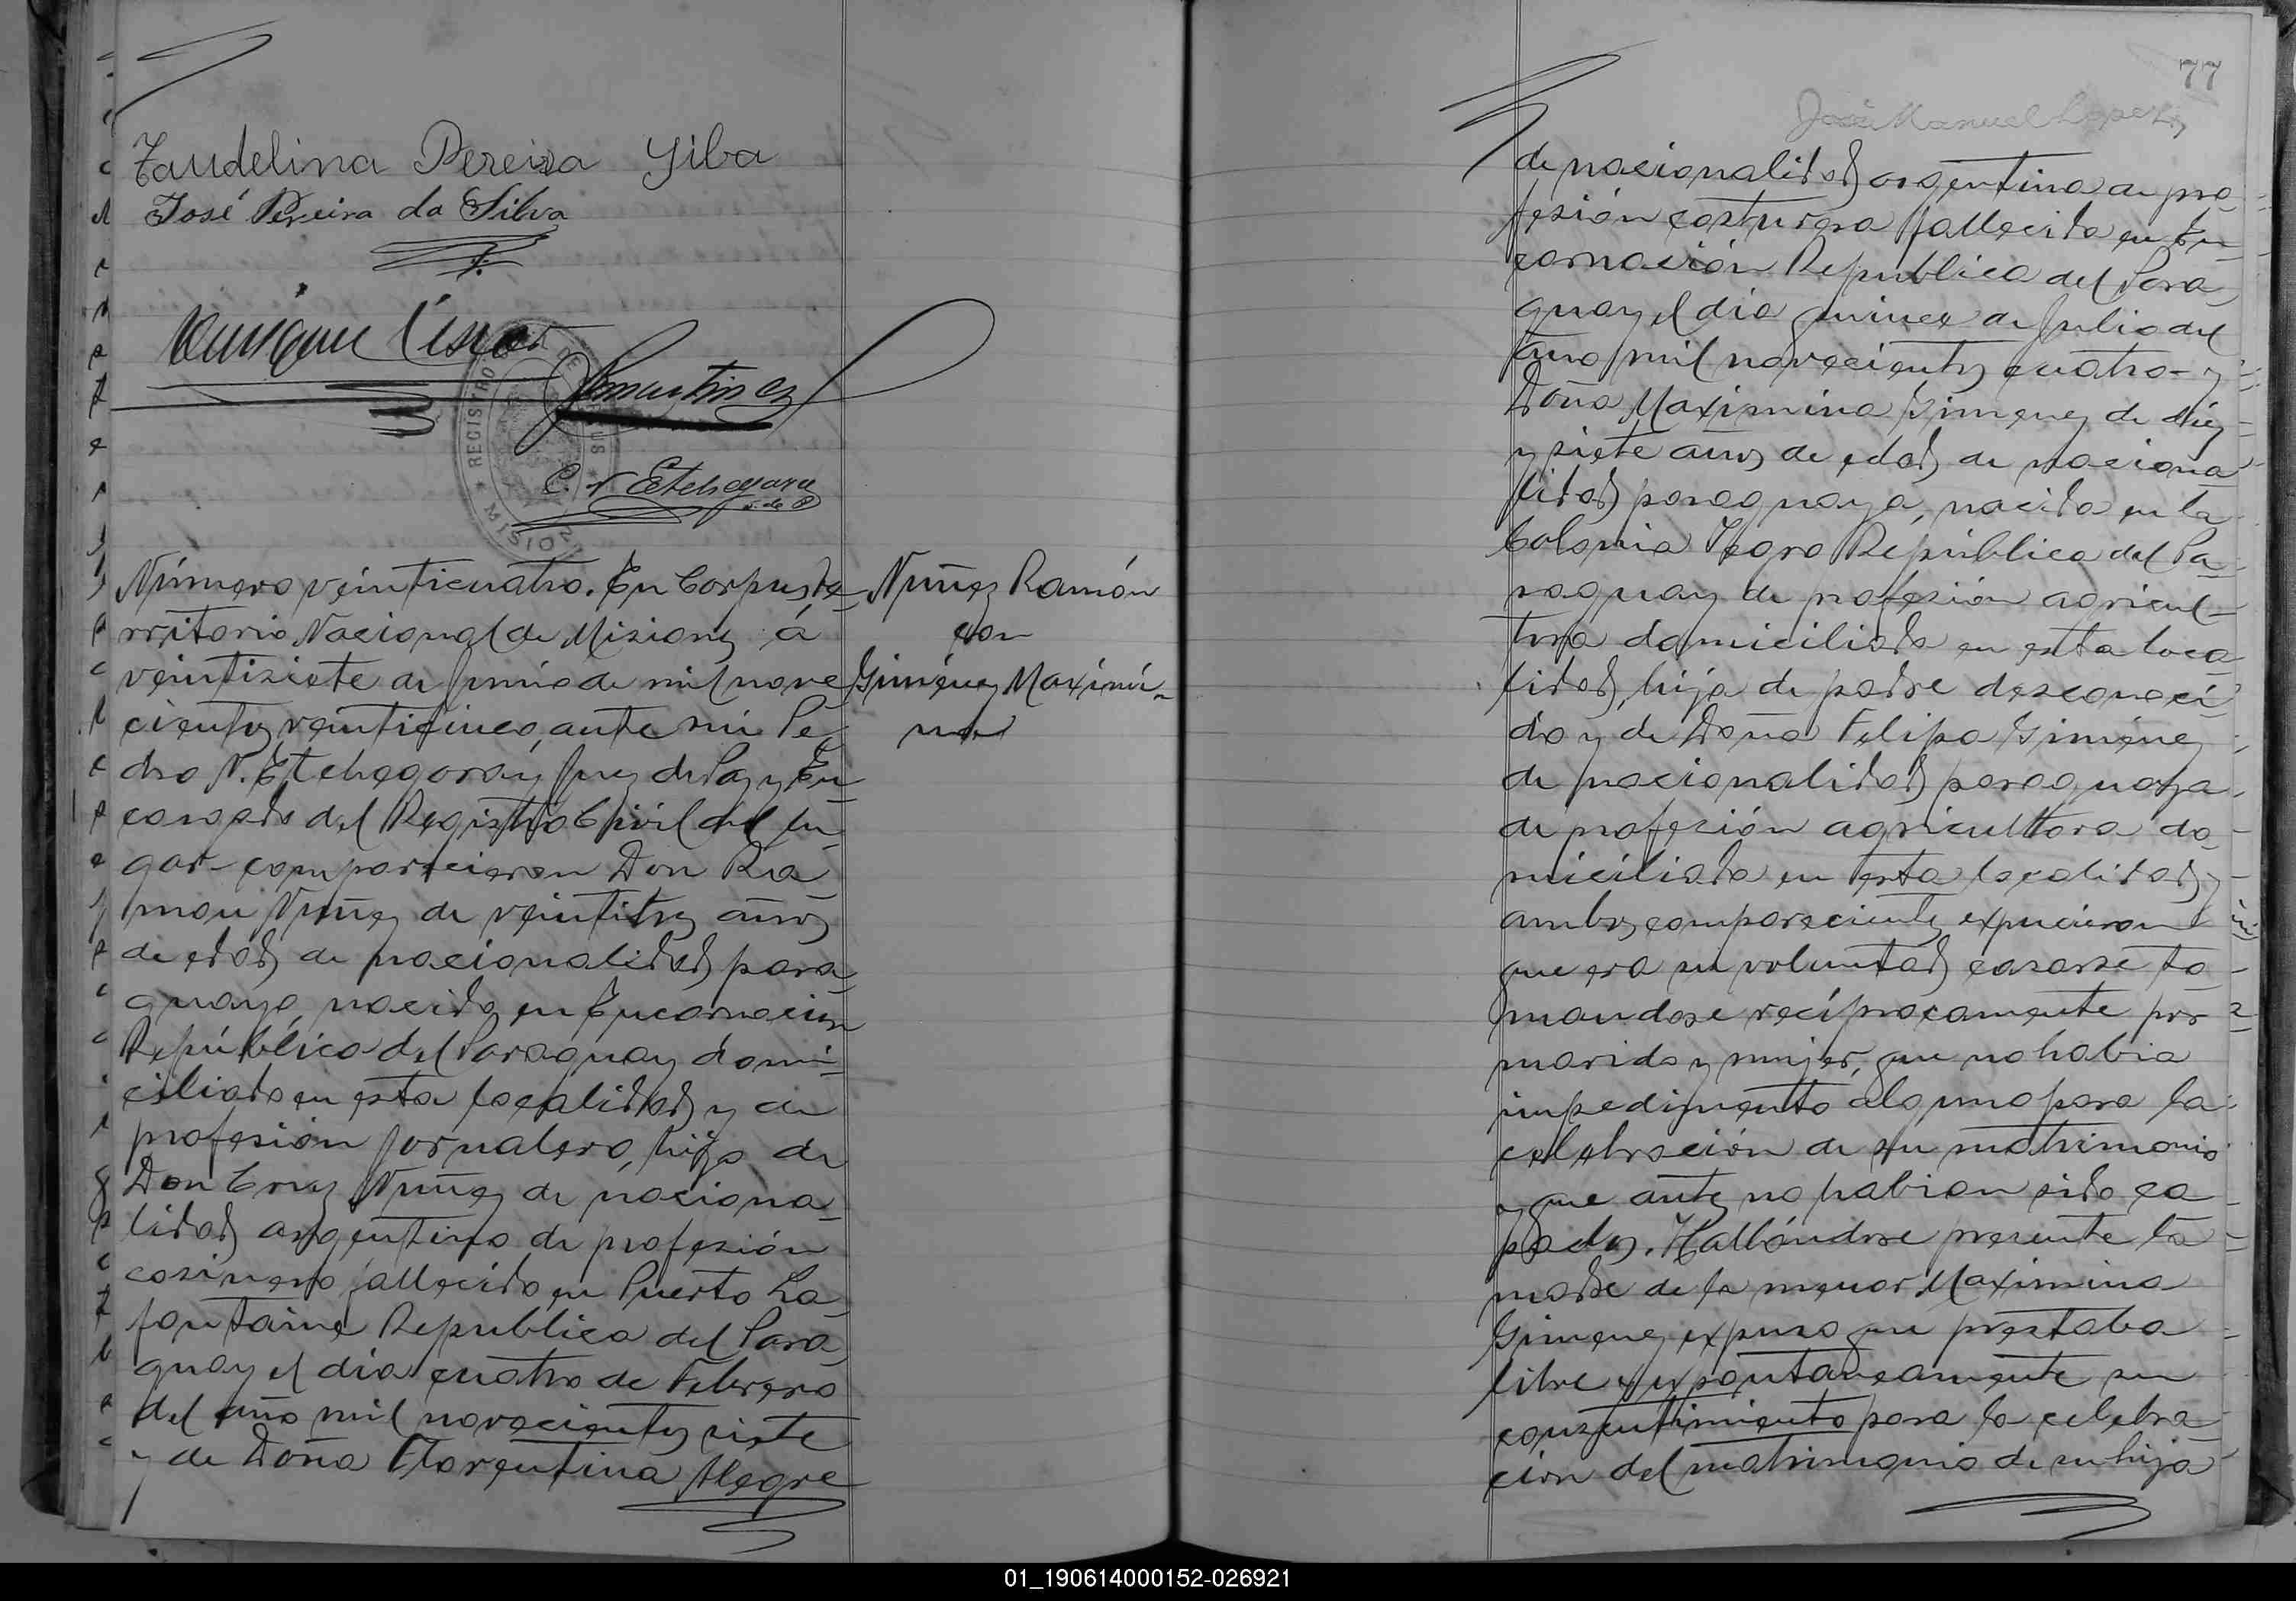 Taudelina Pereira Silba
José Pereira da Silva
Martinez
REGISTRO
MISIONES
C. N Etchegaray
J. de P
Número veinticuatro. En Corpus, te-
rritorio Nacional de Misiones á
veintisiete de Junio de mil nove
cientos veinticinco, ante mi Pe
dro N. Etchegaray Juez de Paz y En
cargado del Registro Civil del lu
gar comparecieron Don Ra
mon Nuñez de veintitres años
de edad, de nacionalidad para
guaya, nacido en Encarnacion
República del Paraguay domi
ciliado en esta localidad y de
profesión jornalero, hijo de
Don Cruz Nuñez de naciona
lidad argentino de profesión
cosinero fallecido en Puerto La
fontaine Republica del Para
guay el día cuatro de Febrero
del año mil novecientos siete
y de Doña Florentina Alegre
Nuñez Ramón
con
Giménez Maximi-
na
77
José Manuel Lopez
de nacionalidad argentina de pro
fesión costurera fallecida en En
carnación Republica del Para
guay el día quince de Julio del
año mil novecientos cuatro- y
Doña Maximina Gimenez de diez
y siete años de edad, de naciona
lidad paraguaya, nacida en la
Colonia Negra República del Pa
raguay de profesión agricul-
tora domiciliada en esta loca
lidad, hija de padre desconoci
do y de Doña Felipa Giménez
de nacionalidad paraguaya
de profesión agricultora do
miciliada en esta localidad y
ambos comparecientes expucieron
que era su voluntad casarse to
mandose recíprocamente por
marido y mujer, que no habia
impedimento alguno para la
celebración de su matrimonio
y que antes no habian sido ca
sados. Hallándose presente la
madre de la menor Maximina
Gimenez expuso que prestaba
libre y espontaneamente su
consentimiento para la celebra
ción del matrimonio de su hija
01_190614000152-026921